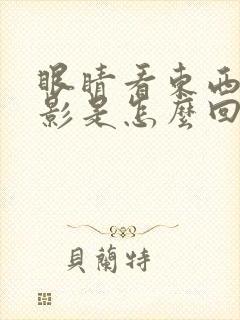 眼睛看東西
影是怎麼回
貝蘭特